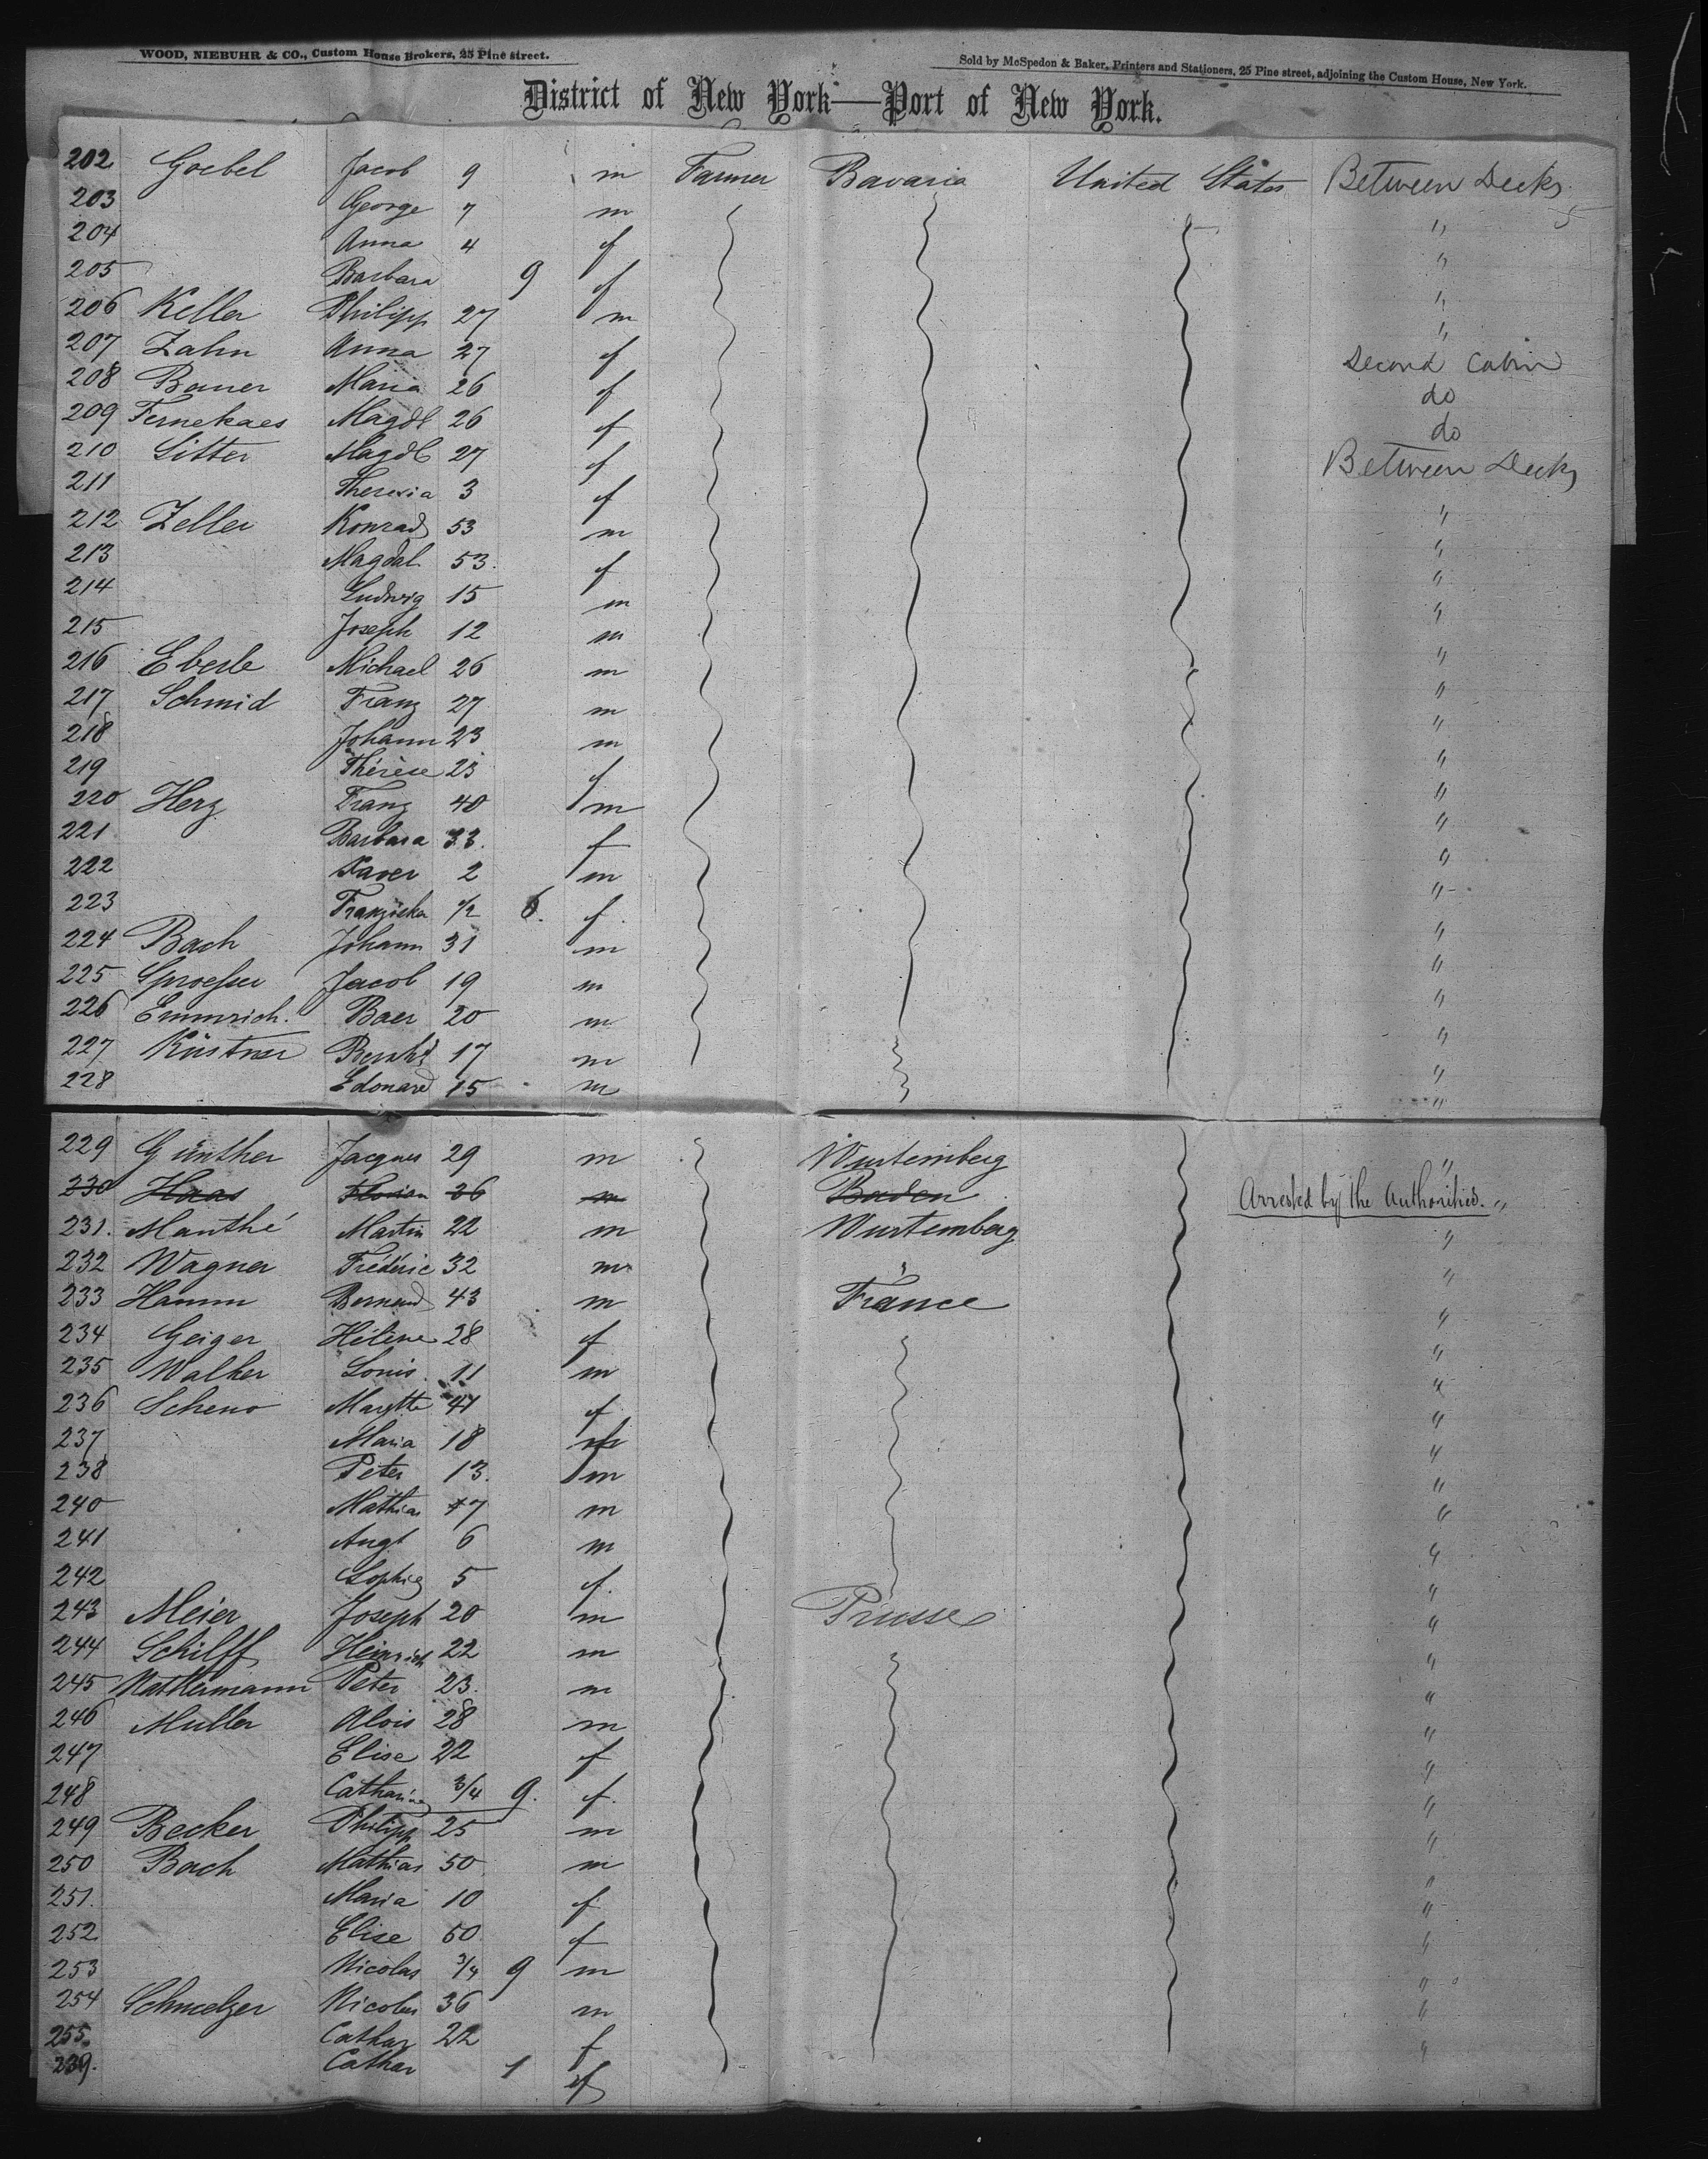 WOOD, NIEBUHR & CO., Custom House Brokers, 25 Pine street.
Sold by McSpedon & Baker, Printers and Stationers, 25 Pine street, adjoining the Custom House, New York.
District of New York—Port of New York.
202 Goebel Jacob 9 m Farmer Bavaria United States Between Decks
203 George 7 m "
204 Anna 4 f "
205 Barbara 9 f "
206 Keller Philipp 27 m "
207 Zahn Anna 27 f Second Cabin
208 Bauer Maria 26 f do
209 Fernekaes Magdl 26 f do
210 Sitter Magdl 27 f Between Decks
211 Theresia 3 f "
212 Zeller Konrad 53 m "
213 Magdal. 53. f "
214 Ludwig 15 m "
215 Joseph 12 m "
216 Eberle Michael 26 m "
217 Schmid Franz 27 m "
218 Johann 23 m "
219 Thérèse 23 f "
220 Herz Franz 40 m "
221 Barbara 33. f "
222 Xaver 2 m "
223 Franziska 1/2 6. f "
224 Bach Johann 31 m "
225 Jacob 19 m "
226 Emmrich. Baer 20 m "
227 Küstner Bernhd 17 m "
228 Edouard 15 m "
229 Günther Jacques 29 m Wurtemberg "
230 Haas Florian 26 m Baden Arrested by the Authorities. "
231. Manthé Martin 22 m Wurtemberg "
232 Wagner Fréderic 32 m "
233 Hamm Bernard 43 m France "
234 Geiger Hélène 28 f "
235 Walker Louis 11 m "
236 Scheno Margtte 41 f "
237 Maria 18 f "
238 Peter 13. m "
240 Mathias 7 m "
241 Augt 6 m "
242 Sophie 5 f. "
243 Meier Joseph 20 m Prusse "
244 Schilff Heinrich 22 m "
245 Peter 23. m "
246 Muller Alois 28 m "
247 Elise 22 f "
248 Catharina 3/4 9. f. "
249 Becker Philipp 25 m "
250 Bach Mathias 50 m "
251. Maria 10 f "
252 Elise 50 f "
253 Nicolas 3/4 9 m "
254 Schmelzer Nicolas 36 m "
255. Cathar 22 f "
239. Cathar 1 f